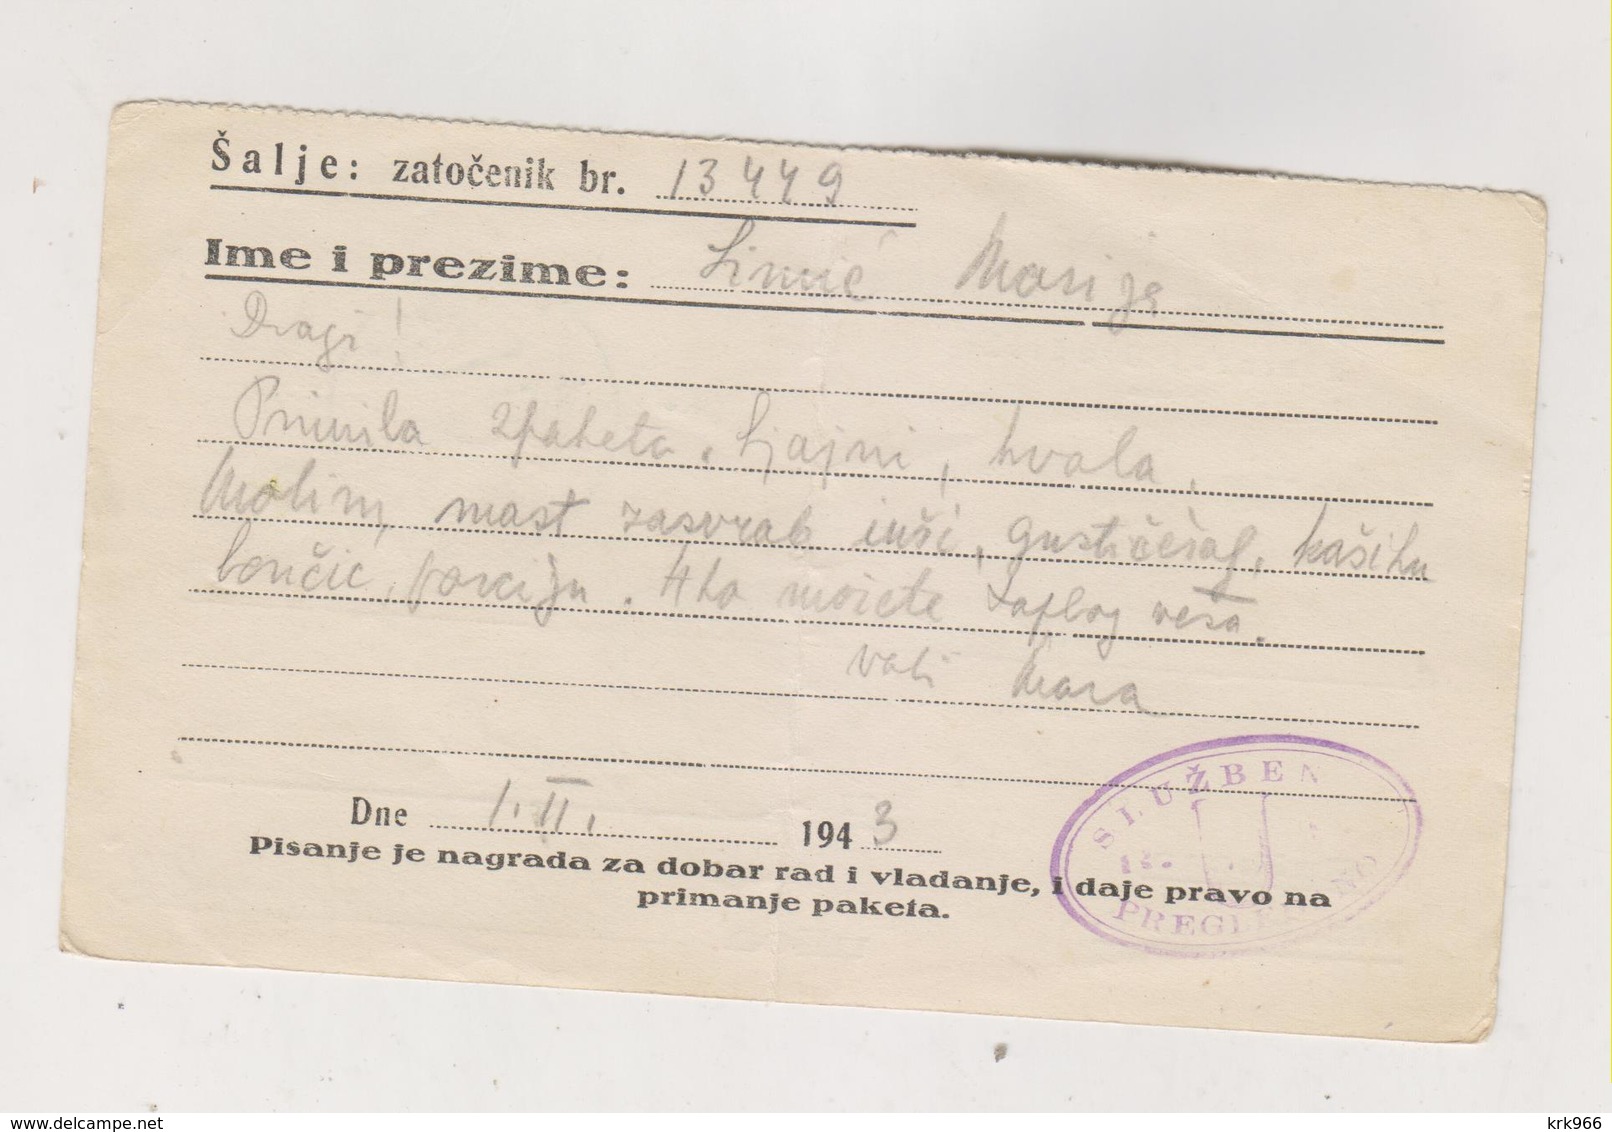 Šalje: zatočenik br. 13449
Ime i prezime: Simić Marija
Dragi!
Primila 2 paketa. Sjajni, hvala.
Molim, mast za svrab i uši, gusti češalj, kašiku
lončić, porciju. Ako možete zaplog veša.
Vaša Mara
Dne 1. II. 1943
Pisanje je nagrada za dobar rad i vladanje, i daje pravo na
primanje paketa.
SLUŽBEN
PREGLE NO
krk966